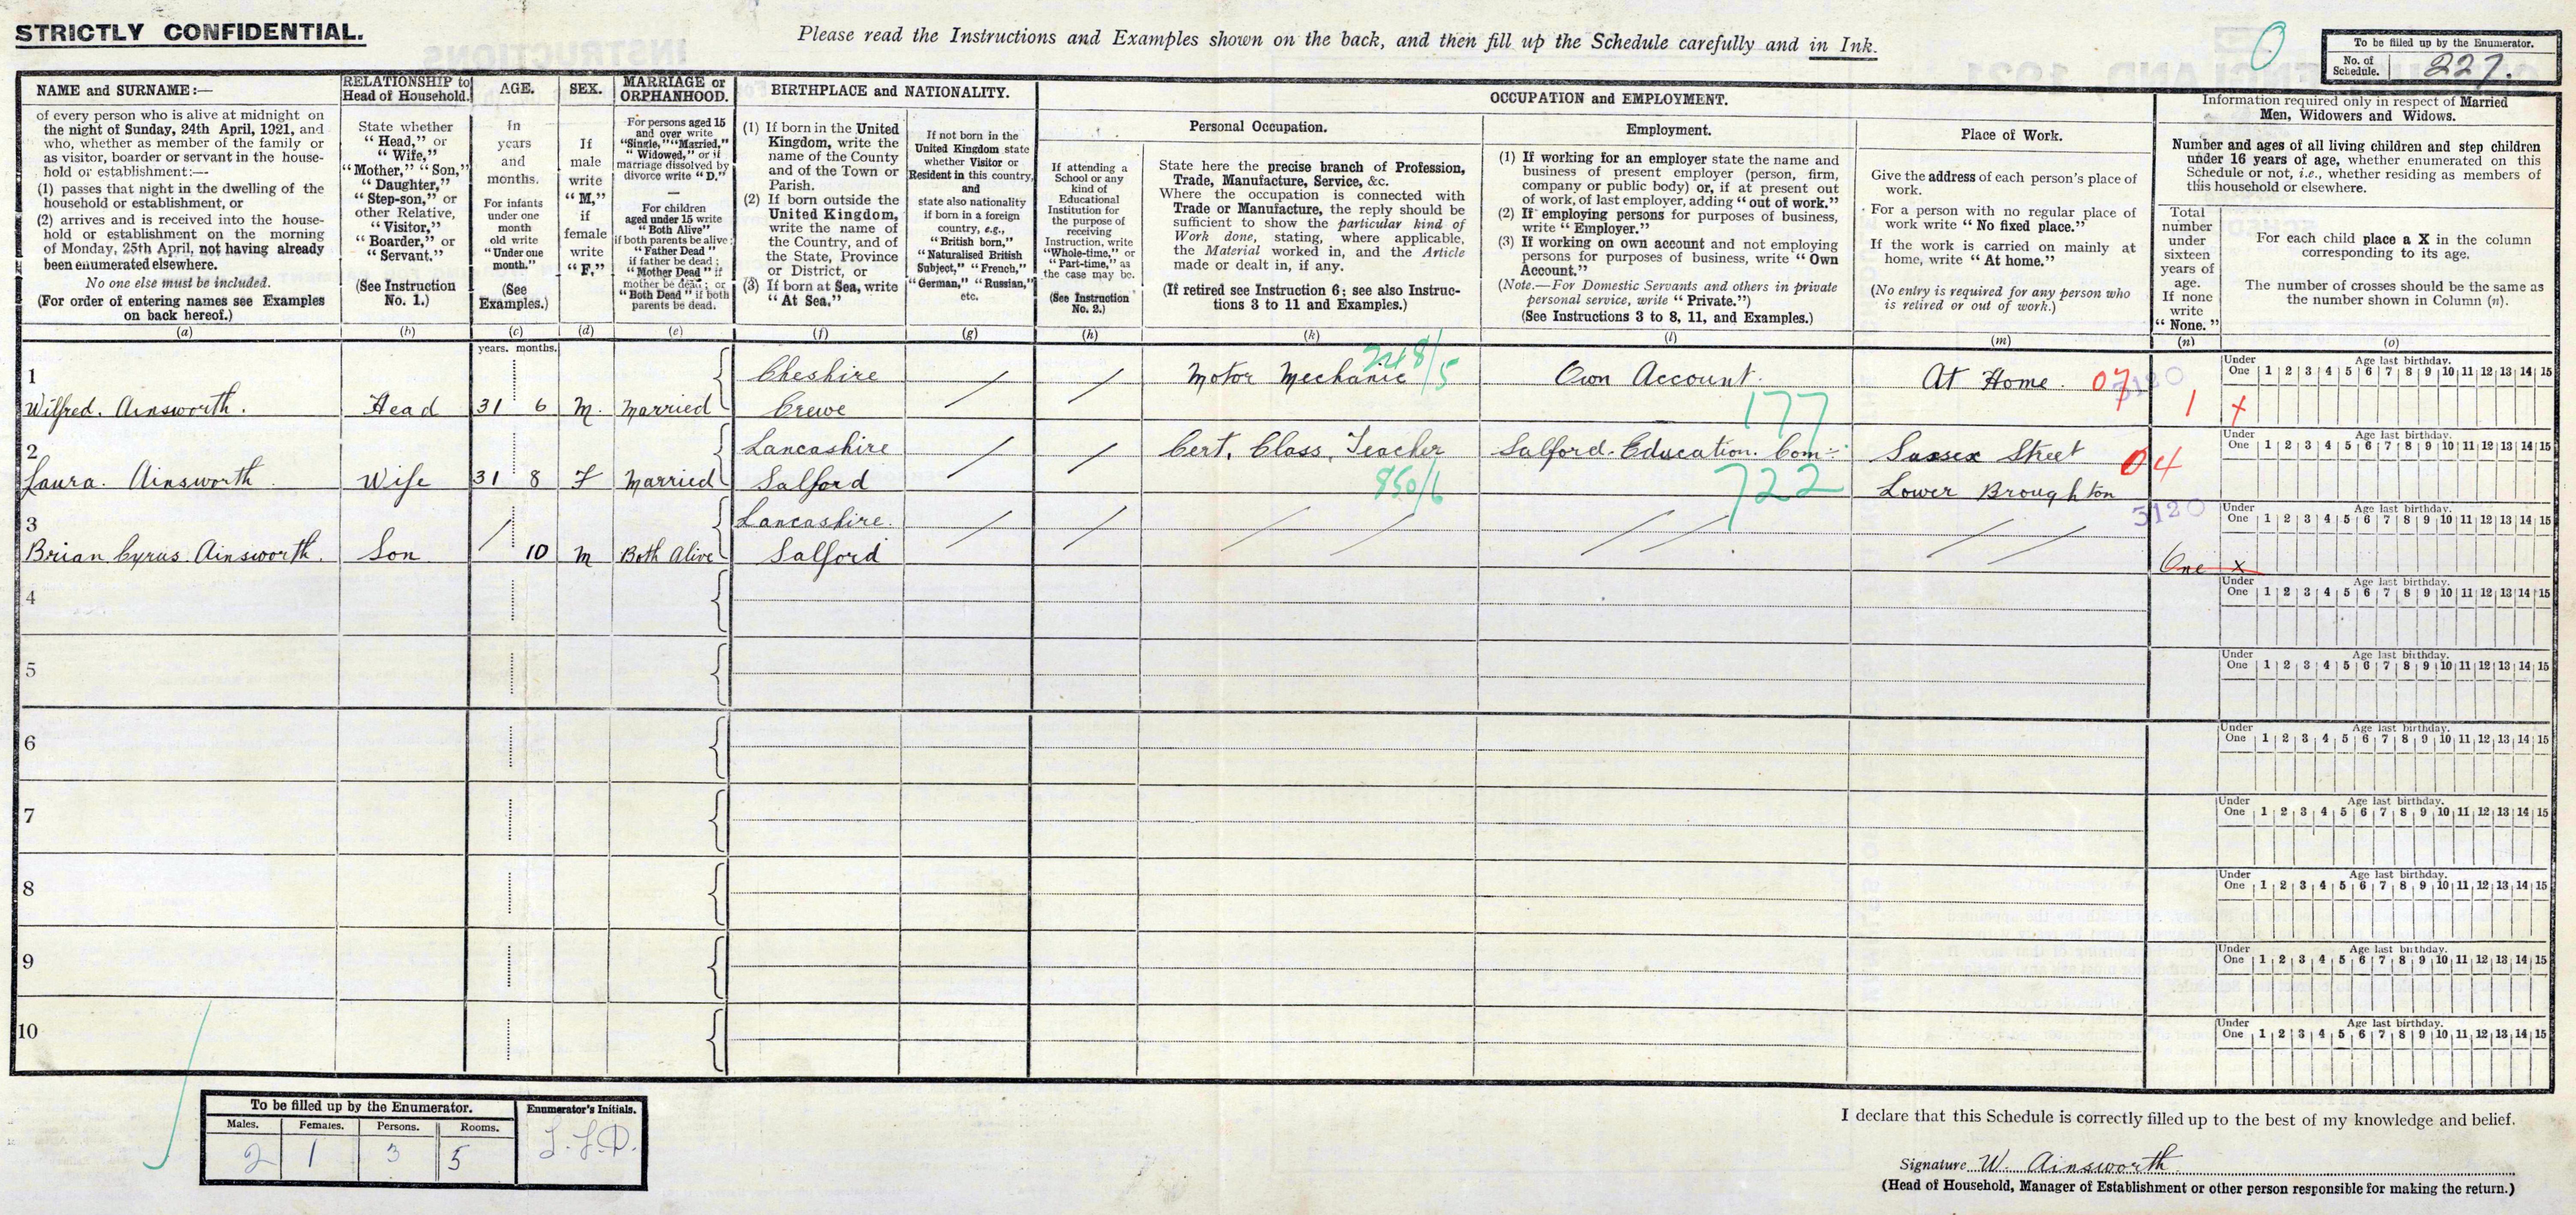 STRICTLY CONFIDENTIAL.
Please read the Instructions and Examples shown on the back, and then fill up the Schedule carefully and in Ink.
0
To be filled up by the Enumerator.
No. of Schedule. 227.
NAME and SURNAME:—
of every person who is alive at midnight on
the night of Sunday, 24th April, 1921, and
who, whether as member of the family or
as visitor, boarder or servant in the house-
hold or establishment:—
(1) passes that night in the dwelling of the
household or establishment, or
(2) arrives and is received into the house-
hold or establishment on the morning
of Monday, 25th April, not having already
been enumerated elsewhere.
No one else must be included.
(For order of entering names see Examples
on back hereof.)
(a)
RELATIONSHIP to
Head of Household.
State whether
"Head," or
"Wife,"
"Mother," "Son,"
"Daughter,"
"Step-son," or
other Relative,
"Visitor,"
"Boarder," or
"Servant."
(See Instruction
No. 1.)
(b)
AGE.
In
years
and
months.
For infants
under one
month
old write
"Under one
month."
(See
Examples.)
(c)
SEX.
If
male
write
"M,"
if
female
write
"F."
(d)
MARRIAGE or
ORPHANHOOD.
For persons aged 15
and over write
"Single," "Married,"
"Widowed," or if
marriage dissolved by
divorce write "D."
For children
aged under 15 write
"Both Alive"
if both parents be alive;
"Father Dead"
if father be dead;
"Mother Dead" if
mother be dead; or
"Both Dead" if both
parents be dead.
(e)
BIRTHPLACE and NATIONALITY.
(1) If born in the United
Kingdom, write the
name of the County
and of the Town or
Parish.
(2) If born outside the
United Kingdom,
write the name of
the Country, and of
the State, Province
or District, or
(3) If born at Sea, write
"At Sea."
(f)
If not born in the
United Kingdom state
whether Visitor or
Resident in this country,
and
state also nationality
if born in a foreign
country, e.g.,
"British born,"
"Naturalised British
Subject," "French,"
"German," "Russian,"
etc.
(g)
OCCUPATION and EMPLOYMENT.
If attending a
School or any
kind of
Educational
Institution for
the purpose of
receiving
Instruction, write
"Whole-time," or
"Part-time," as
the case may be.
(See Instruction
No. 2.)
(h)
Personal Occupation.
State here the precise branch of Profession,
Trade, Manufacture, Service, &c.
Where the occupation is connected with
Trade or Manufacture, the reply should be
sufficient to show the particular kind of
Work done, stating, where applicable,
the Material worked in, and the Article
made or dealt in, if any.
(If retired see Instruction 6; see also Instruc-
tions 3 to 11 and Examples.)
(k)
Employment.
(1) If working for an employer state the name and
business of present employer (person, firm,
company or public body) or, if at present out
of work, of last employer, adding "out of work."
(2) If employing persons for purposes of business,
write "Employer."
(3) If working on own account and not employing
persons for purposes of business, write "Own
Account."
(Note.—For Domestic Servants and others in private
personal service, write "Private.")
(See Instructions 3 to 8, 11, and Examples.)
(l)
Place of Work.
Give the address of each person's place of
work.
For a person with no regular place of
work write "No fixed place."
If the work is carried on mainly at
home, write "At home."
(No entry is required for any person who
is retired or out of work.)
(m)
Information required only in respect of Married
Men, Widowers and Widows.
Number and ages of all living children and step children
under 16 years of age, whether enumerated on this
Schedule or not, i.e., whether residing as members of
this household or elsewhere.
Total
number
under
sixteen
years of
age.
If none
write
"None."
(n)
For each child place a X in the column
corresponding to its age.
The number of crosses should be the same as
the number shown in Column (n).
(o)
years. months.
1
Wilfred. Ainsworth. Head 31 6 M. Married Cheshire Crewe Motor Mechanic 248/5 Own Account. 177 At Home. 07 3120 1 X
Under One Age last birthday. 1 2 3 4 5 6 7 8 9 10 11 12 13 14 15
2
Laura. Ainsworth. Wife 31 8 F Married Lancashire Salford Cert. Class. Teacher 850/6 Salford. Education. Com: 722 Sussex Street Lower Broughton 04
Under One Age last birthday. 1 2 3 4 5 6 7 8 9 10 11 12 13 14 15
3
Brian Cyrus. Ainsworth. Son 10 M Both Alive Lancashire. Salford 3120 One X
Under One Age last birthday. 1 2 3 4 5 6 7 8 9 10 11 12 13 14 15
4
Under One Age last birthday. 1 2 3 4 5 6 7 8 9 10 11 12 13 14 15
5
Under One Age last birthday. 1 2 3 4 5 6 7 8 9 10 11 12 13 14 15
6
Under One Age last birthday. 1 2 3 4 5 6 7 8 9 10 11 12 13 14 15
7
Under One Age last birthday. 1 2 3 4 5 6 7 8 9 10 11 12 13 14 15
8
Under One Age last birthday. 1 2 3 4 5 6 7 8 9 10 11 12 13 14 15
9
Under One Age last birthday. 1 2 3 4 5 6 7 8 9 10 11 12 13 14 15
10
Under One Age last birthday. 1 2 3 4 5 6 7 8 9 10 11 12 13 14 15
To be filled up by the Enumerator.
Males. Females. Persons. Rooms.
2 1 3 5
Enumerator's Initials.
I declare that this Schedule is correctly filled up to the best of my knowledge and belief.
Signature W. Ainsworth
(Head of Household, Manager of Establishment or other person responsible for making the return.)